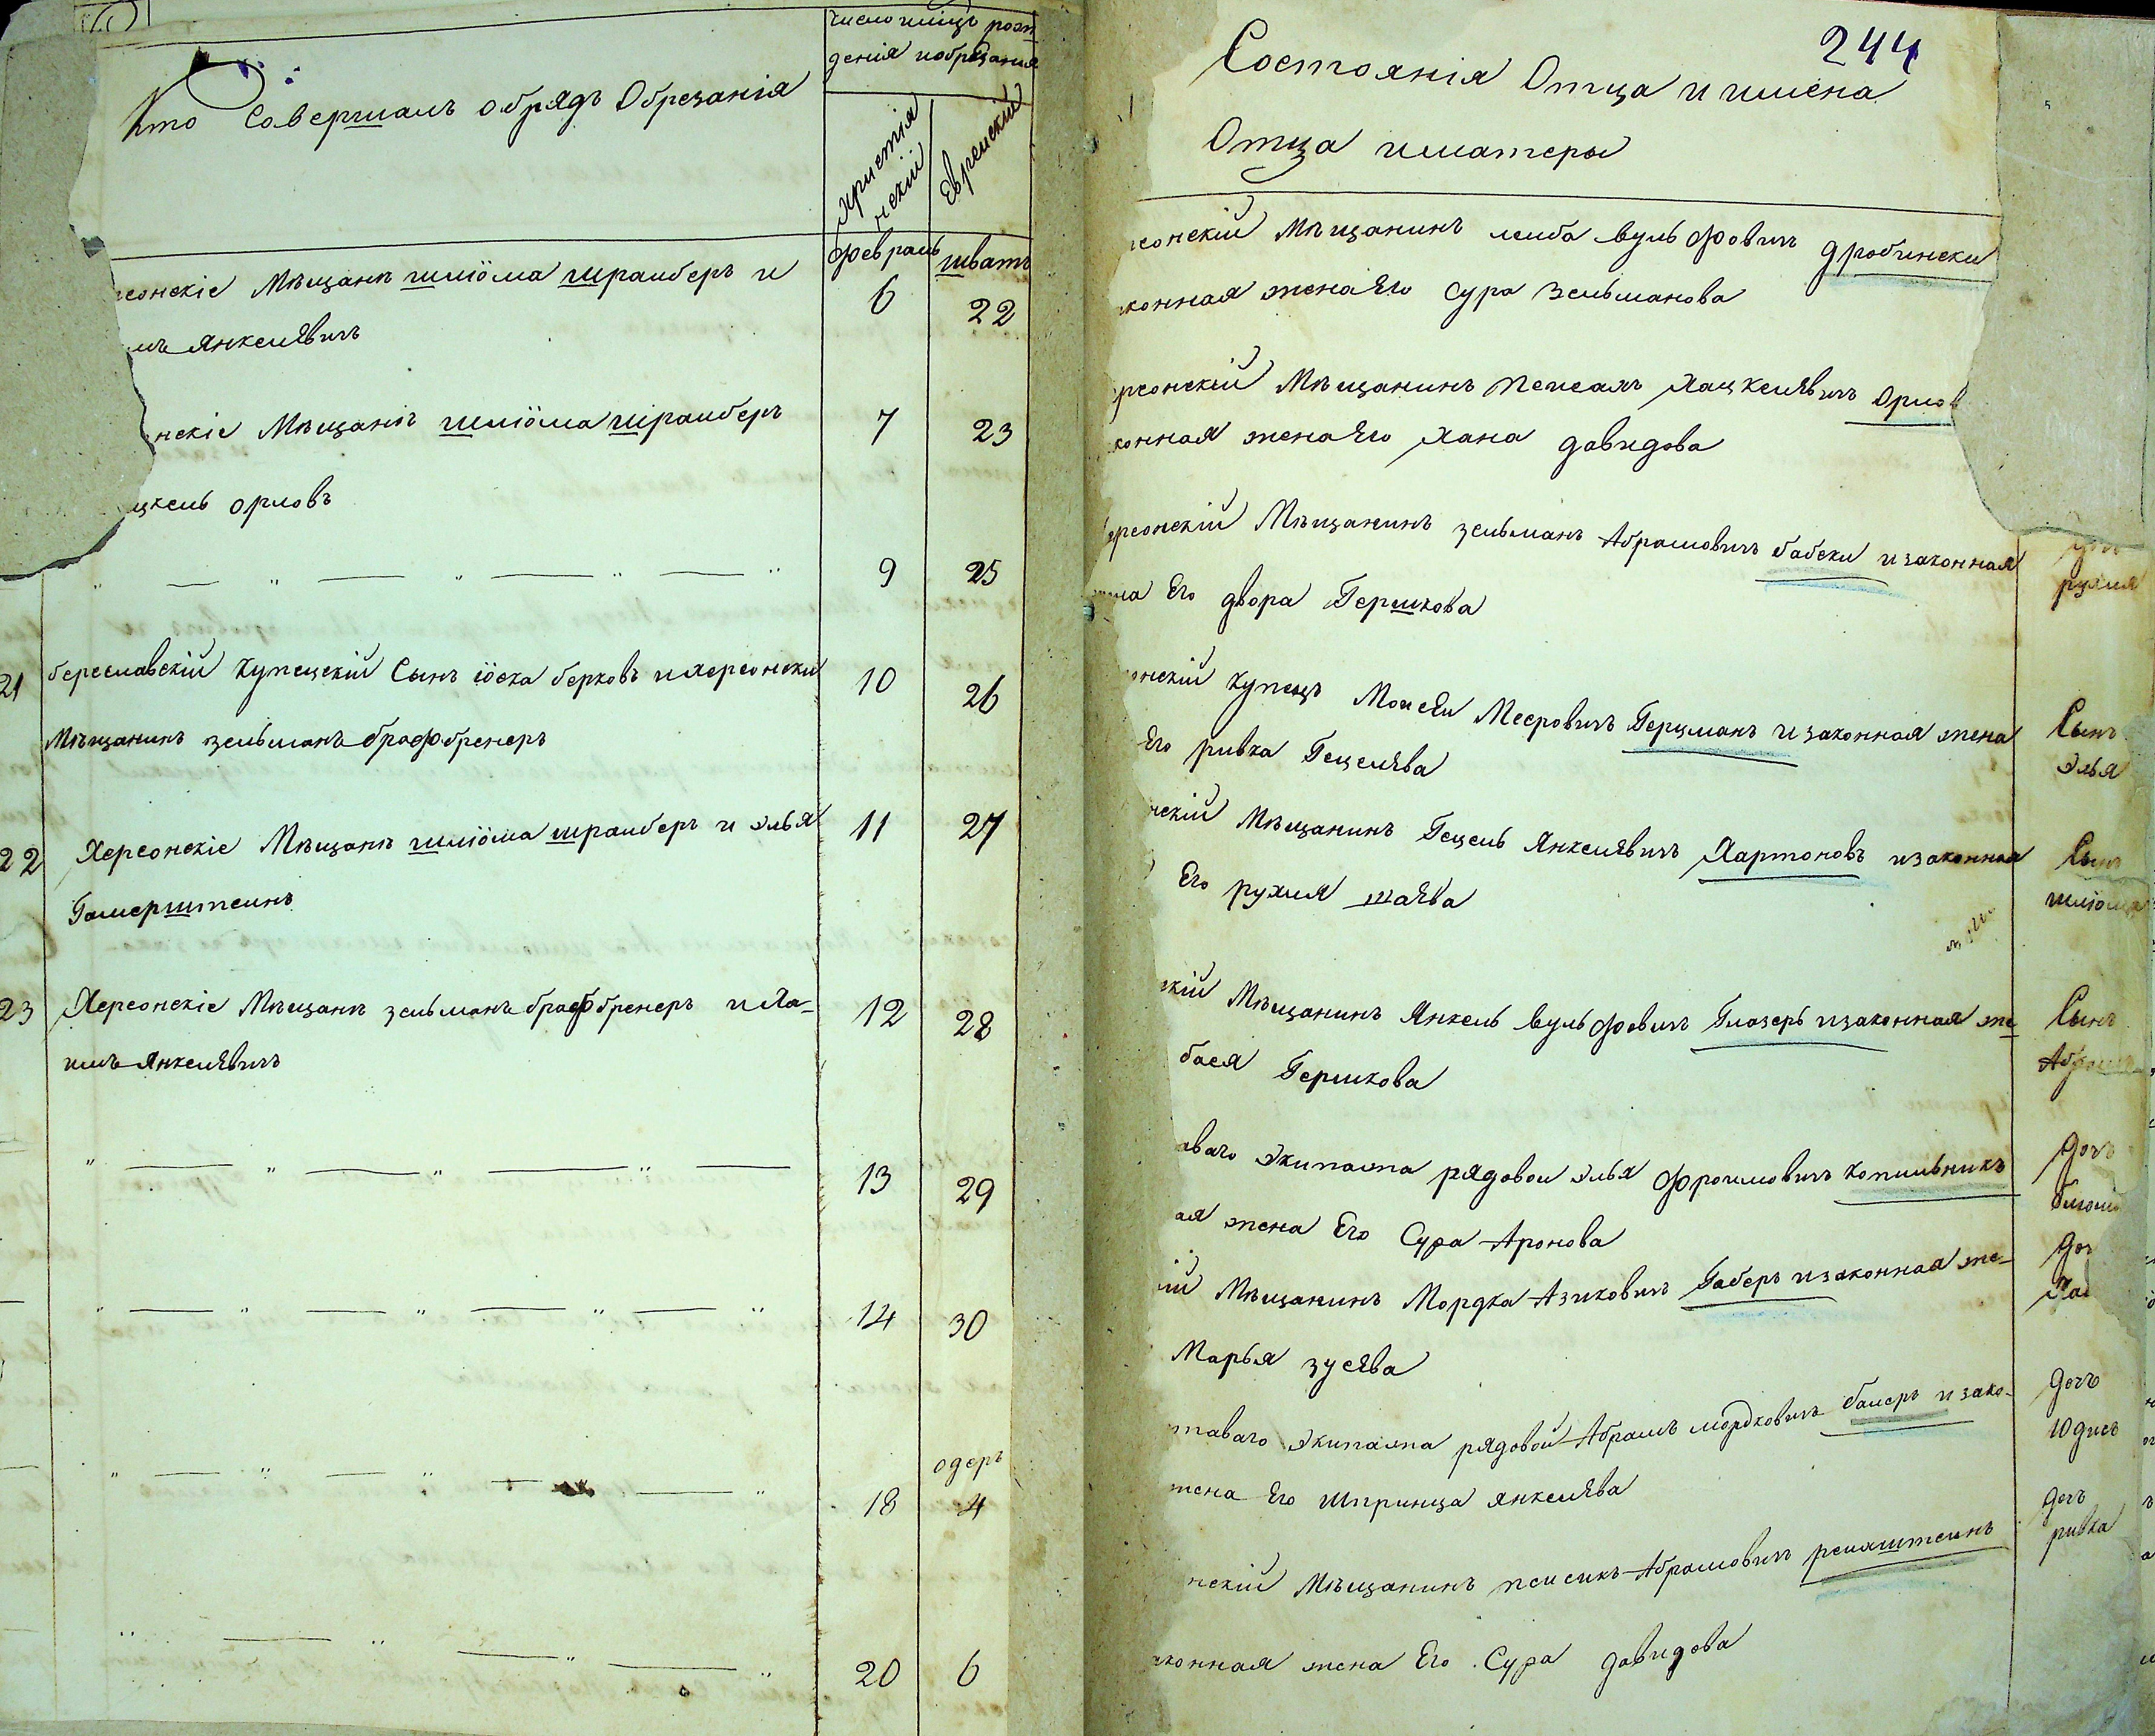 Кто Совершалъ обрядъ Обрезанія
число имцъ рож
денія иобрѣзанія
христія
нскій
Еврейскій
февраль
шватъ
рсонскіе Мѣщанъ шліома шрайберъ и
6
22
мъ Янкелявичъ
нскіе Мѣщанъ шліома шрайберъ
7
23
цкель орловъ
9
25
21
береславскій купецскій Сынъ іоска берковъ и херсонски
10
26
Мѣщанинъ зельманъ брафбренеръ
22
Херсонскіе Мѣщанъ шліома шрайберъ и элья
11
27
Гамерштеинъ
23
Херсонскіе Мѣщанъ зельманъ брафбренеръ и Ха-
12
28
имъ Янкелявичъ
13
29
14
30
одеръ
18
4
20
6
244
Состоянія Отца и имена
Отца иматеры
рсонскій Мѣщанинъ лейба вульфовичъ дробински
конная жена Его сура Зельманова
рсонскій Мѣщанинъ пейсахъ Хацкелявичъ Орлов
конная жена Его Хана давидова
ерсонскій Мѣщанинъ зельманъ Абрамовичъ бабски изаконная
ена Его двора Гершкова
онскій купецъ Мойсей Мееровичъ Герцманъ изаконная жена
Его ривка Гецелява
нскій Мѣщанинъ Гецель Янкелявичъ Хартоновъ изаконная
Его рухля шаява
скій Мѣщанинъ Янкель вульфовичъ Глазеръ изаконная же
бася Гершкова
аваго экипажа рядовои элья фроимовичъ копильникъ
ая жена Его Сура Аронова
ій Мѣщанинъ Мордка Азиковичъ Габеръ изаконная же-
Марья зусява
таваго экипажа рядовой Абрамъ мордковичъ балеръ изако-
жена Его Шпринца янкелява
нскій Мѣщанинъ псисикъ Абрамовичъ рейхштеинъ
аконная жена Его Сура давидова
рухля
Сынъ
элья
Сынъ
шліома
Сынъ
Абрамъ
дочъ
блюма
доч
дочъ
Юдись
дочъ
ривка